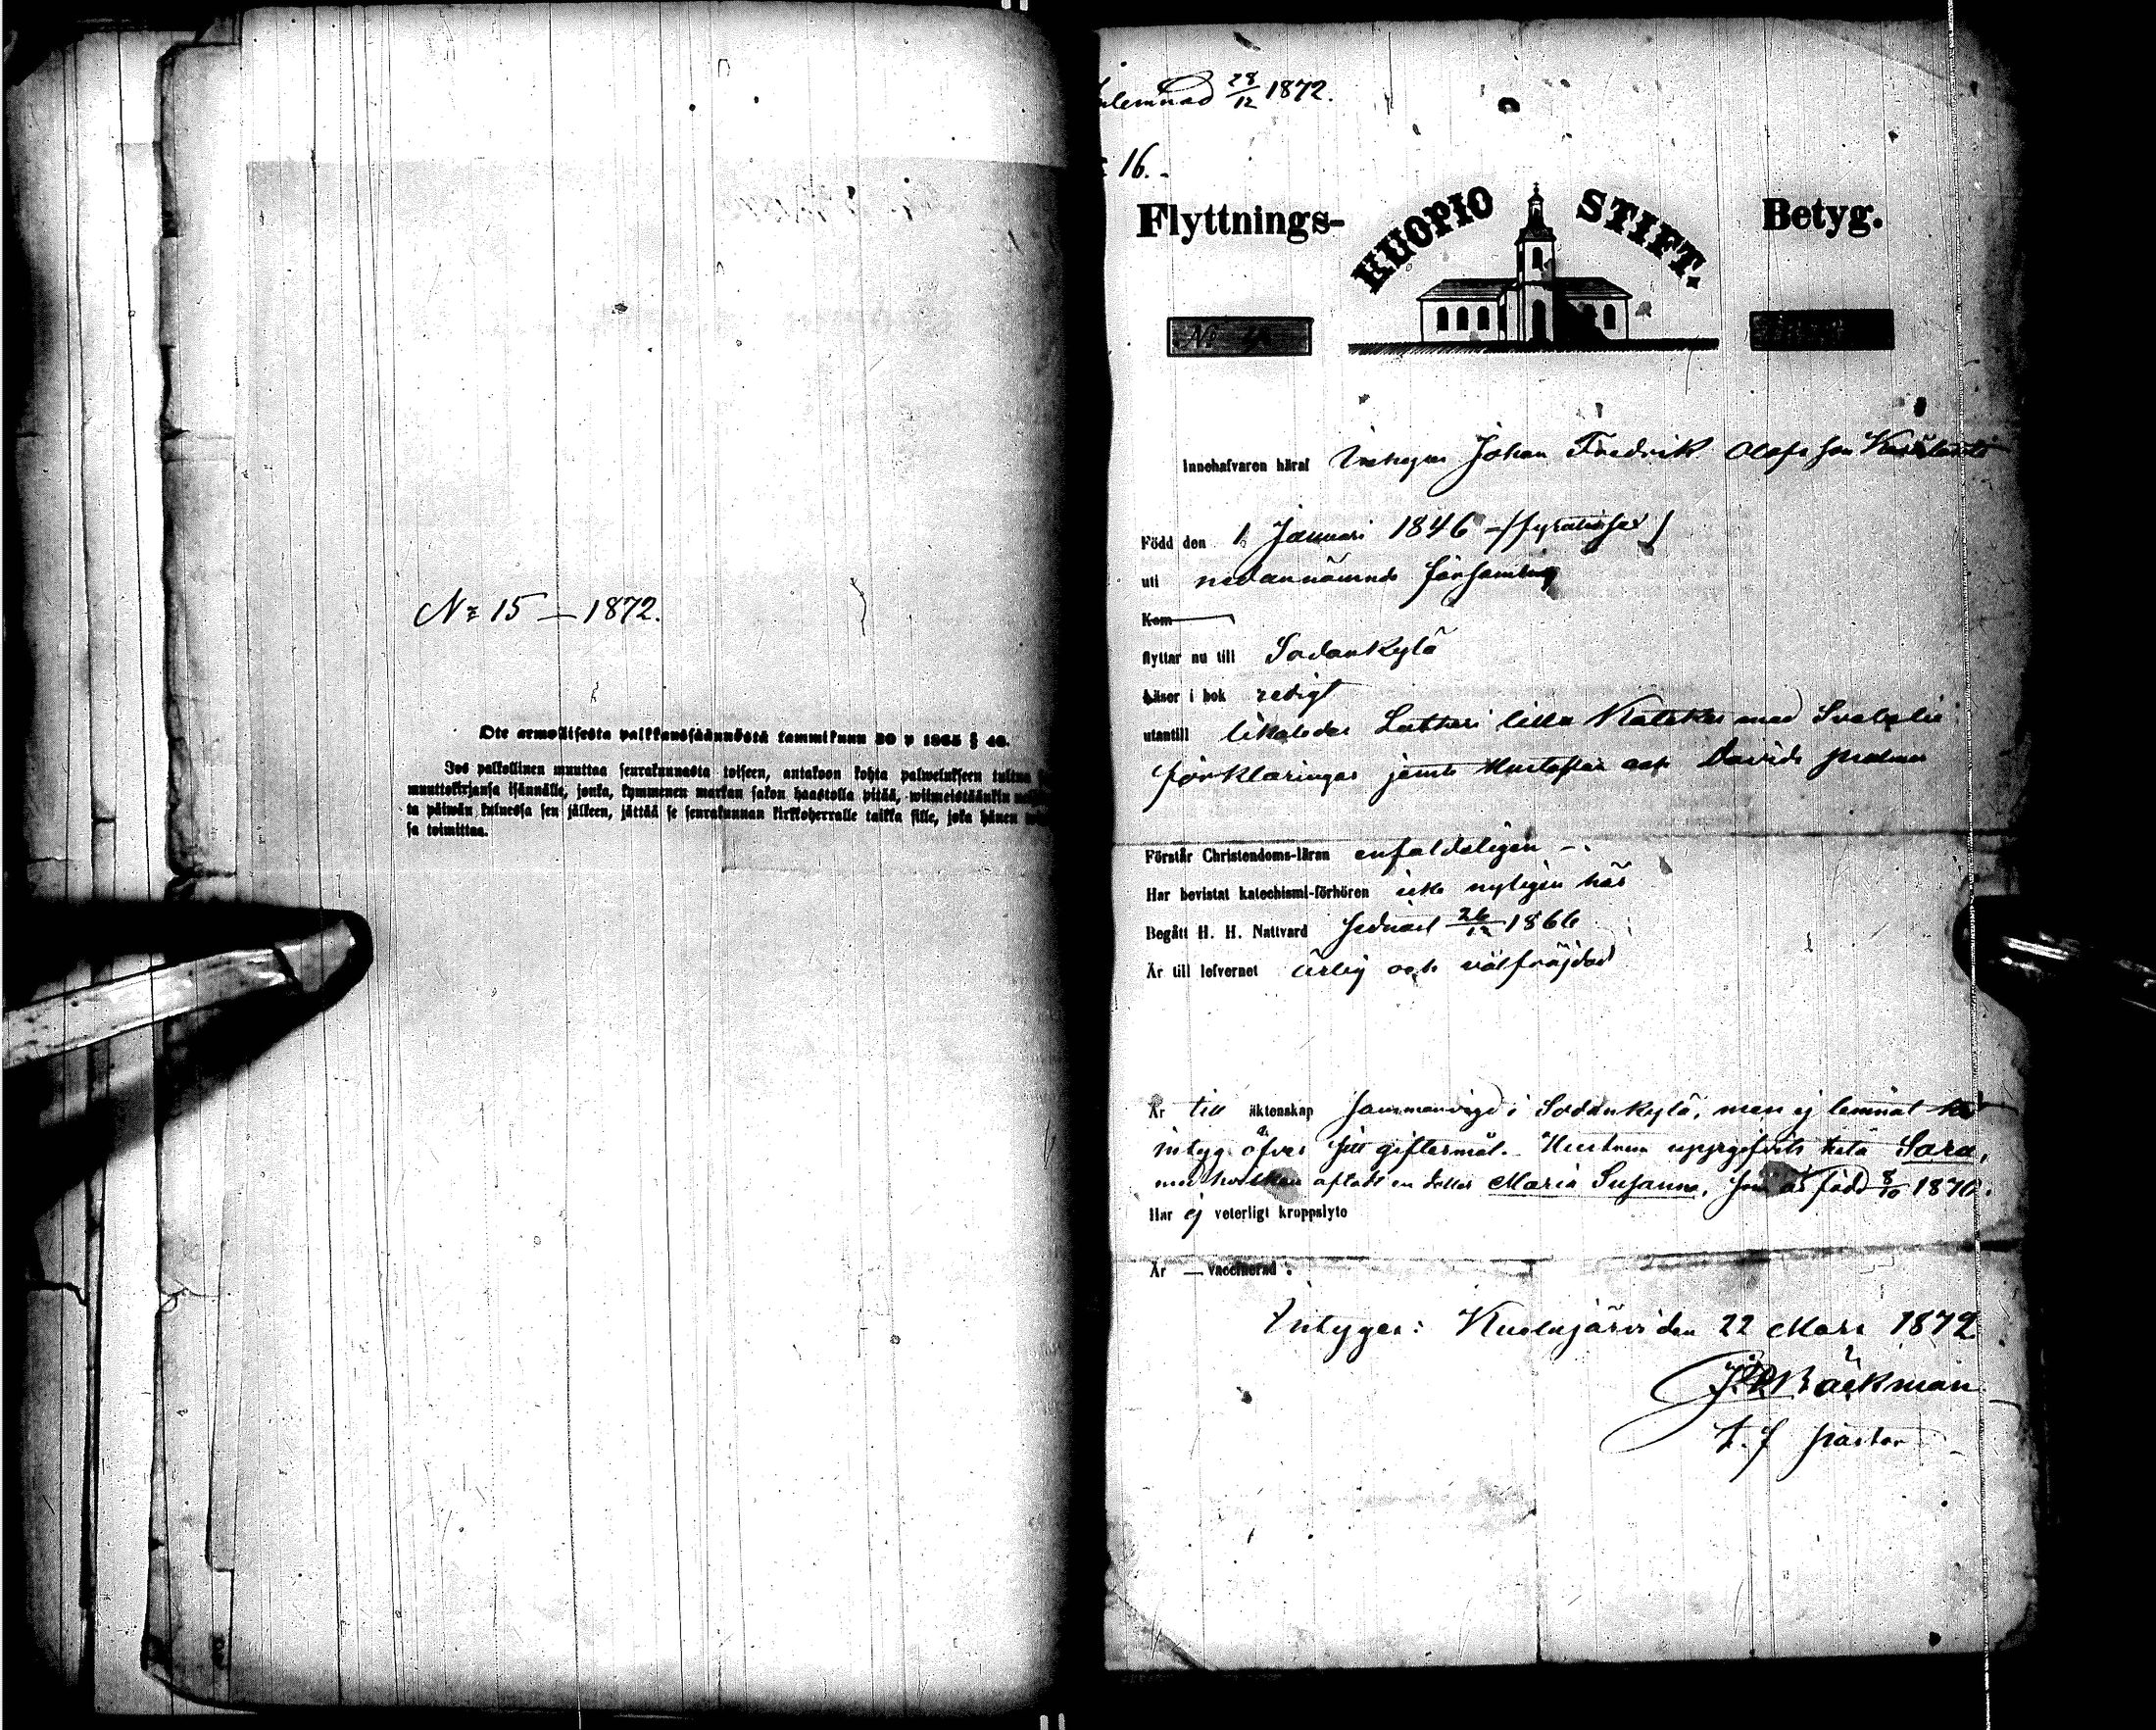 № 15 — 1872.
Ote armollisesta palkkaussäännöstä tammikuun 30 p 1865 § 40.
Jos palkollinen muuttaa seurakunnasta toiseen, antakoon kohta palwelukseen tultua
muuttokirjansa isännälle, jonka, kymmenen markan sakon haastolla pitää, wiimeistäänkin
ta päiwän kuluessa sen jälleen, jättää se seurakunnan kirkkoherralle taikka sille, joka hänen
sa toimittaa.
Inlemnad 28/12 1872.
16.
Flyttnings- KUOPIO STIFT. Betyg.
№
Innehafvaren häraf Johan Fredrik Olofsson
Född den 1 Januari 1846 - (fyratiosex)
uti nedannämnde församling
Kom
flyttar nu till Sodankylä
Läser i bok redigt
utantill likaledes Lutheri lilla Kateches med Svebelii
förklaringar jemte Hustaflan och Davids psalmer
Förstår Christendoms-läran enfaldeligen -.
Har bevistat katechismi-förhören icke nyligen här
Begått H. H. Nattvard sednast 26/12 1866
Är till lefvernet ärlig och välfräjdad
Är till äktenskap sammanvigd i Sodankylä, men ej lemnat
intyg öfver sitt giftermål. Hustrun uppgifvits heta Sara,
med hvilken afladt en dotter Maria Susanna, som är född 8/10 1870.
Har ej veterligt kroppslyte
Är — vaccinerad.
Intygar: Kuolajärvi den 22 Mars 1872
Bäckman
t. f pastor